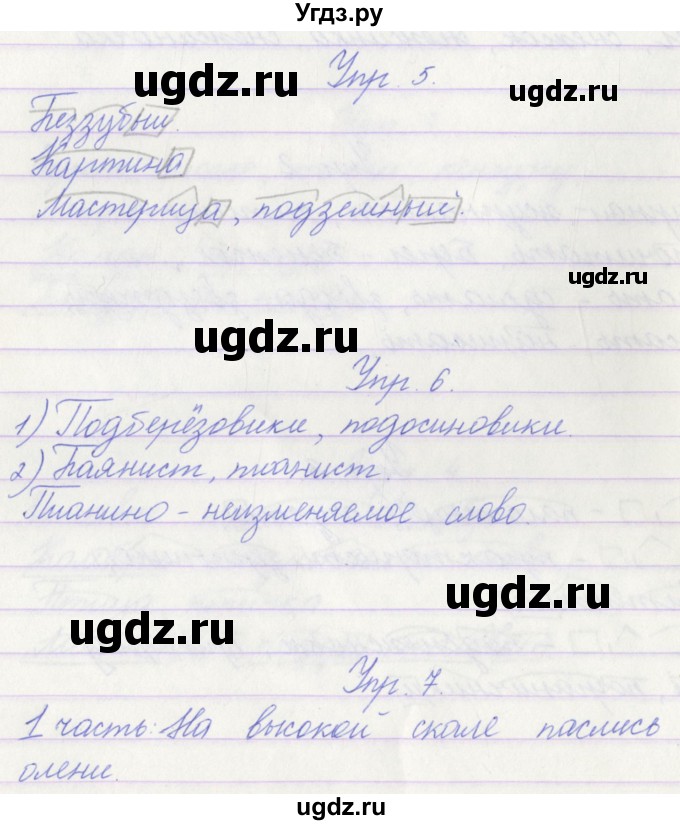 Угдз.ру
ugdz.ru
Упр. 5.
ugdz.ru
Беззубый.
Картина
Мастерица, подземный.
ugdz.ru
ugdz.ru
Упр. 6.
1) Подберёзовики, подосиновики.
2) Баянист, пианист.
Пианино - неизменяемое слово.
ugdz.ru
ugdz.ru
Упр. 7
1 часть: На высокой скале паслись
олени.
ugdz.ru